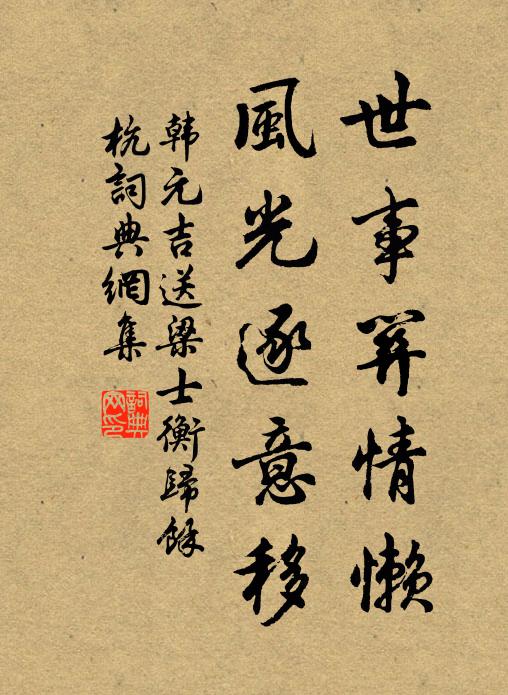 世事關情懶
風光逐意移
韩元吉送梁士衡歸餘
杭詞典網集
詞典网印